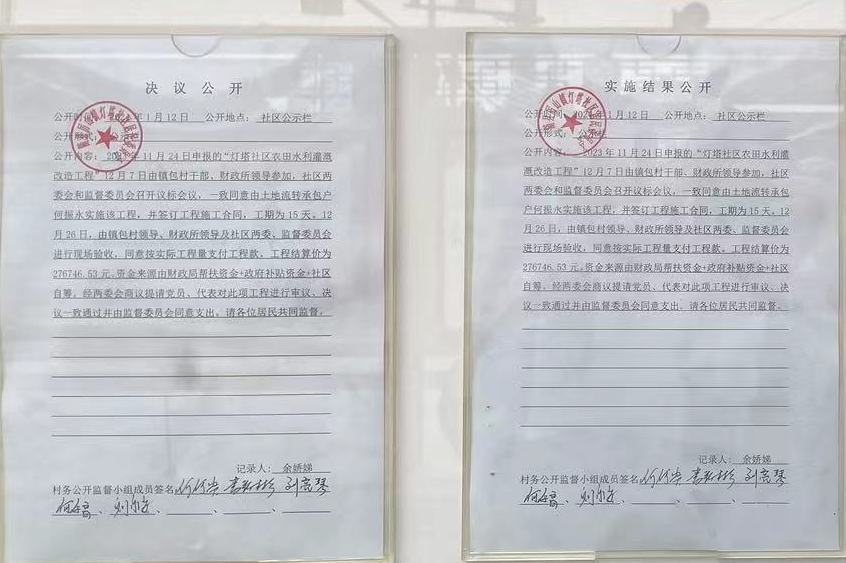 决议公开
公开时间: 2024年1月12日 公开地点: 社区公示栏
公开形式: 公示栏
公开内容: 2023年11月24日申报的“灯塔社区农田水利灌溉
改造工程”12月7日由镇包村干部、财政所领导参加, 社区两
委会和监督委员会召开议标会议, 一致同意由土地流转承包户
何振水实施该工程, 并签订工程施工合同, 工期为15天。12
月26日, 由镇包村领导、财政所领导及社区两委、监督委员会
进行现场验收, 同意按实际工程量支付工程款。工程结算价为
276746.53元。资金来源由财政局帮扶资金+政府补贴资金+社区
自筹。经两委会商议提请党员、代表对此项工程进行审议、决
议一致通过并由监督委员会同意支出。请各位居民共同监督。
记录人: 余娇娣
村务公开监督小组成员签名
实施结果公开
公开时间: 2024年1月12日 公开地点: 社区公示栏
公开形式: 公示栏
公开内容: 2023年11月24日申报的“灯塔社区农田水利灌
溉改造工程”12月7日由镇包村干部、财政所领导参加, 社区
两委会和监督委员会召开议标会议, 一致同意由土地流转承包户
何振水实施该工程, 并签订工程施工合同, 工期为15天。12
月26日, 由镇包村领导、财政所领导及社区两委、监督委员会
进行现场验收, 同意按实际工程量支付工程款。工程结算价为
276746.53元。资金来源由财政局帮扶资金+政府补贴资金+社区
自筹。经两委会商议提请党员、代表对此项工程进行审议、决
议一致通过并由监督委员会同意支出。请各位居民共同监督。
记录人: 余娇娣
村务公开监督小组成员签名